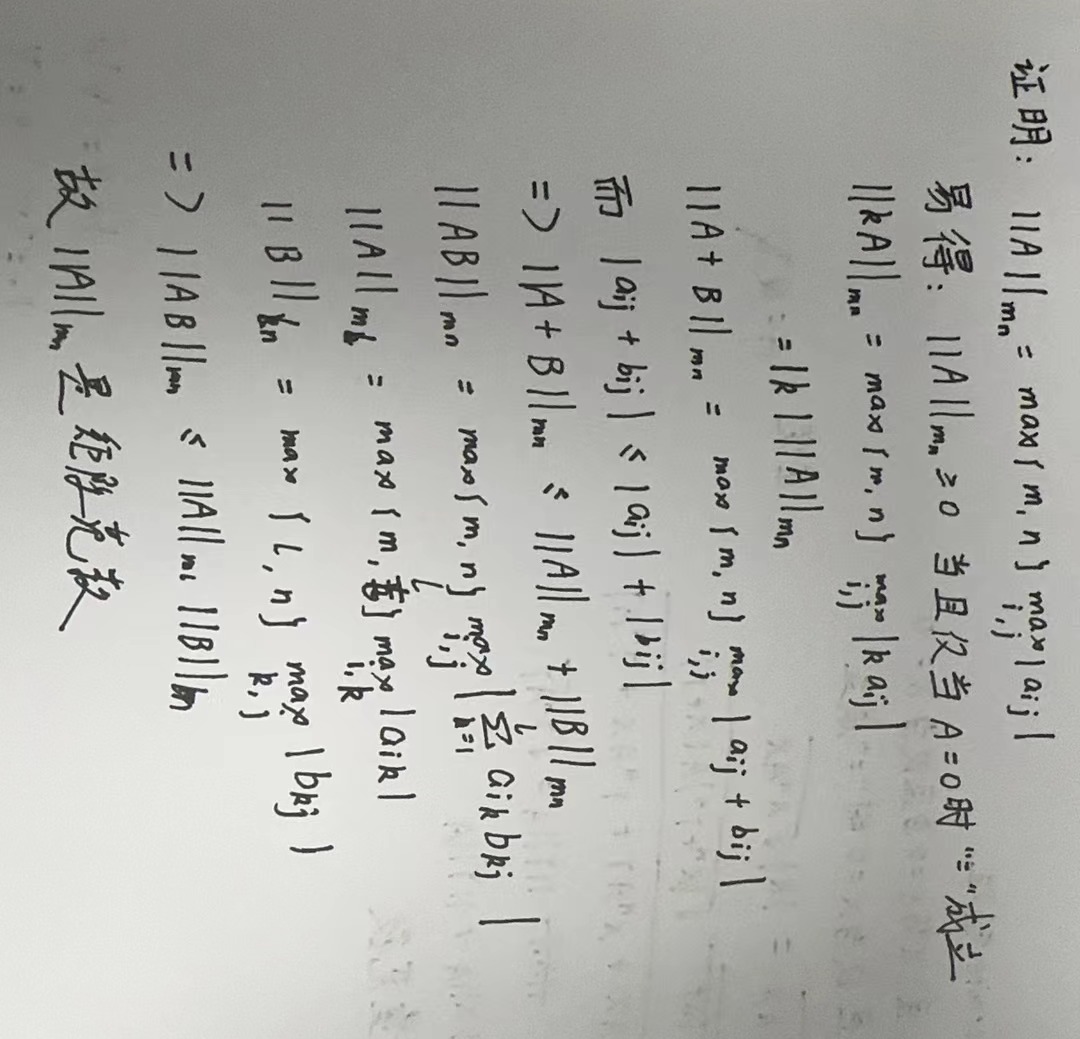 证明: ||A||mn = max{m,n} max i,j |aij|
易得: ||A||mn ≥ 0 当且仅当 A=0时 "=" 成立
||kA||mn = max{m,n} max i,j |kaij|
= |k| ||A||mn
||A+B||mn = max{m,n} max i,j |aij + bij|
而 |aij + bij| ≤ |aij| + |bij|
=> ||A+B||mn ≤ ||A||mn + ||B||mn
||AB||mn = max{m,n} max i,j |∑ l k=1 aik bkj|
||A||ml = max{m, l} max i,k |aik|
||B||ln = max{l,n} max k,j |bkj|
=> ||AB||mn ≤ ||A||ml ||B||ln
故 ||A||mn 是矩阵范数